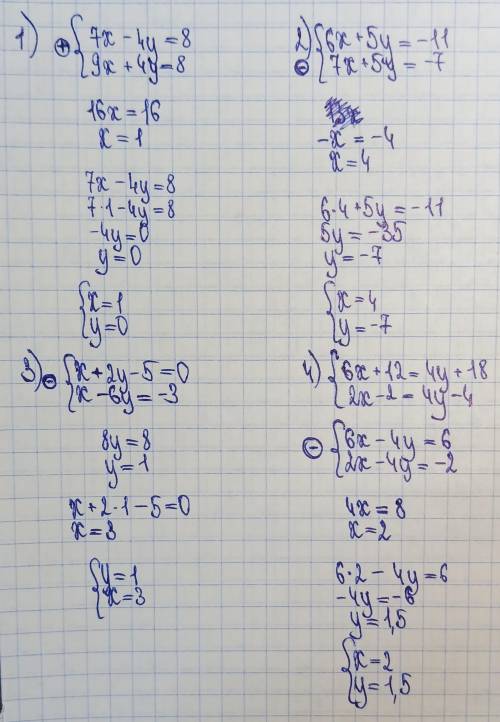 1) ⊕ { 7x - 4y = 8
9x + 4y = 8
16x = 16
x = 1
7x - 4y = 8
7·1 - 4y = 8
-4y = 0
y = 0
{ x = 1
y = 0
2) ⊖ { 6x + 5y = -11
7x + 5y = -7
-x = -4
x = 4
6·4 + 5y = -11
5y = -35
y = -7
{ x = 4
y = -7
3) ⊖ { x + 2y - 5 = 0
x - 6y = -3
8y = 8
y = 1
x + 2·1 - 5 = 0
x = 3
{ y = 1
x = 3
4) { 6x + 12 = 4y + 18
2x - 2 = 4y - 4
⊖ { 6x - 4y = 6
2x - 4y = -2
4x = 8
x = 2
6·2 - 4y = 6
-4y = -6
y = 1,5
{ x = 2
y = 1,5